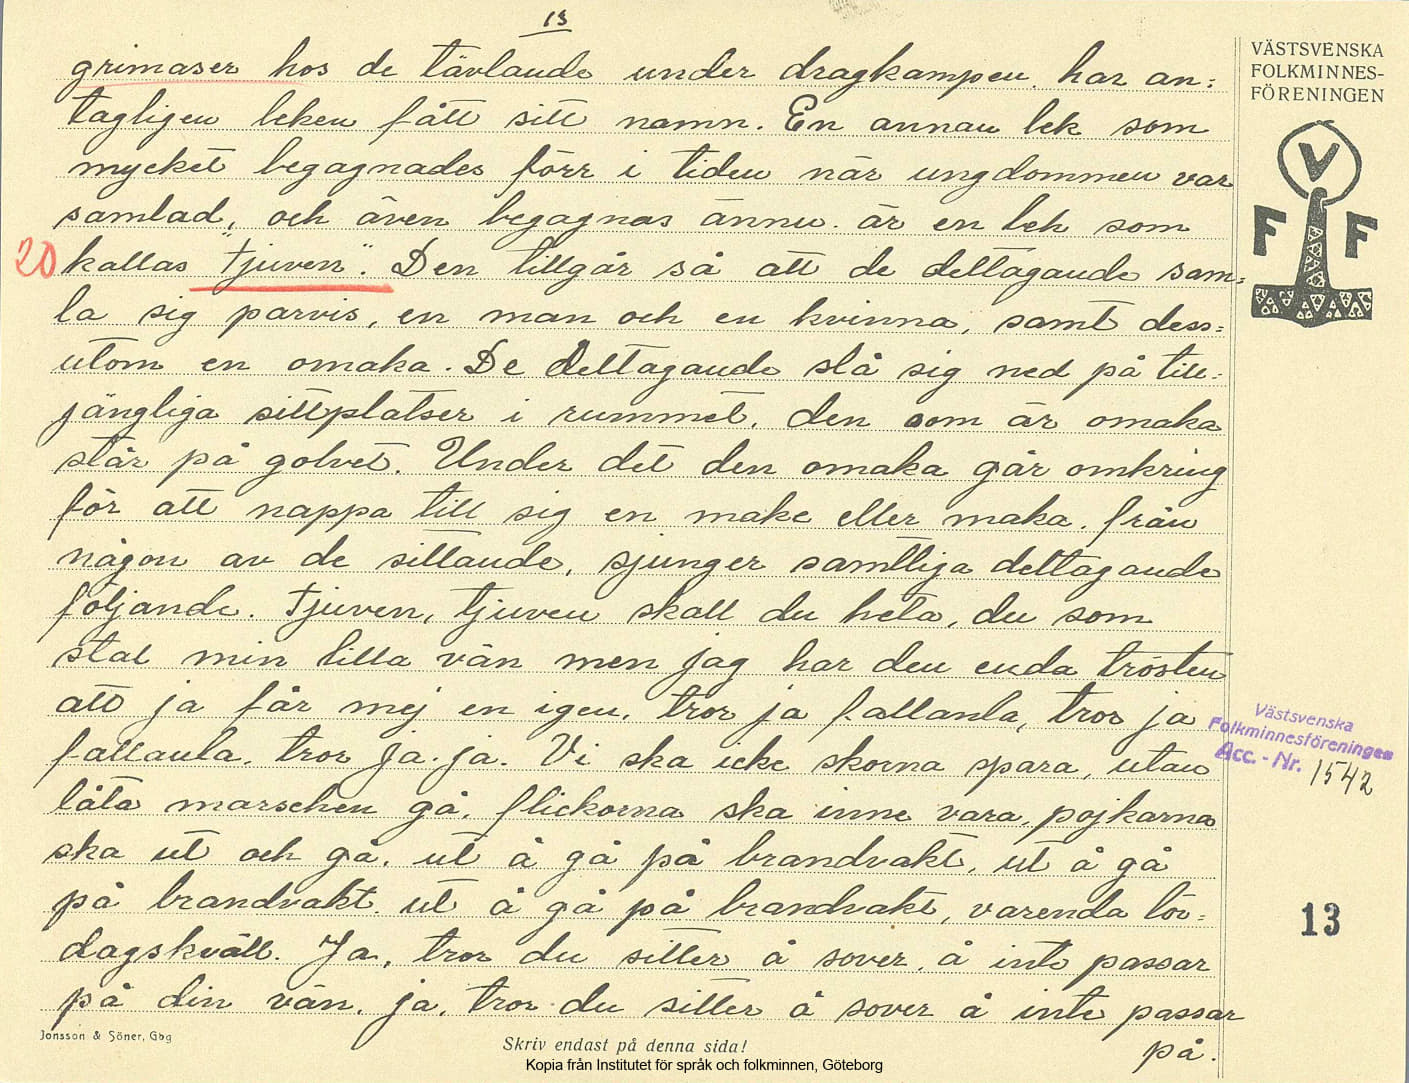 13
grimaser hos de tävlande under dragkampen har an=
tagligen leken fått sitt namn. En annan lek som
mycket begagnades förr i tiden när ungdommen var
samlad, och även begagnas ännu. är en lek som
20 kallas "tjuven". Den tillgår så att de deltagande sam=
la sig parvis, en man och en kvinna, samt dess=
utom en omaka. De deltagande slå sig ned på till=
jängliga sittplatser i rummet, den som är omaka
står på golvet. Under det den omaka går omkring
för att nappa till sig en make eller maka. från
någon av de sittande, sjunger samtliga deltagande
följande. Tjuven, tjuven skall du heta, du som
stal min lilla vän men jag har den enda trösten
att ja får mej en igen, tror ja fallanla, tror ja
fallanla, tror ja. ja. Vi ska icke skorna spara, utan
låta marschen gå, flickorna ska inne vara, pojkarna
ska ut och gå. ut å gå på brandvakt, ut å gå
på brandvakt. ut å gå på brandvakt, varenda lör=
dagskväll. Ja, tror du sitter å sover, å inte passar
på din vän, ja, tror du sitter å sover å inte passar
på.
VÄSTSVENSKA
FOLKMINNES-
FÖRENINGEN
V
F F
Västsvenska
Folkminnesföreningen
Acc.-Nr. 1542
13
Jonsson & Söner, Gbg
Skriv endast på denna sida!
Kopia från Institutet för språk och folkminnen, Göteborg